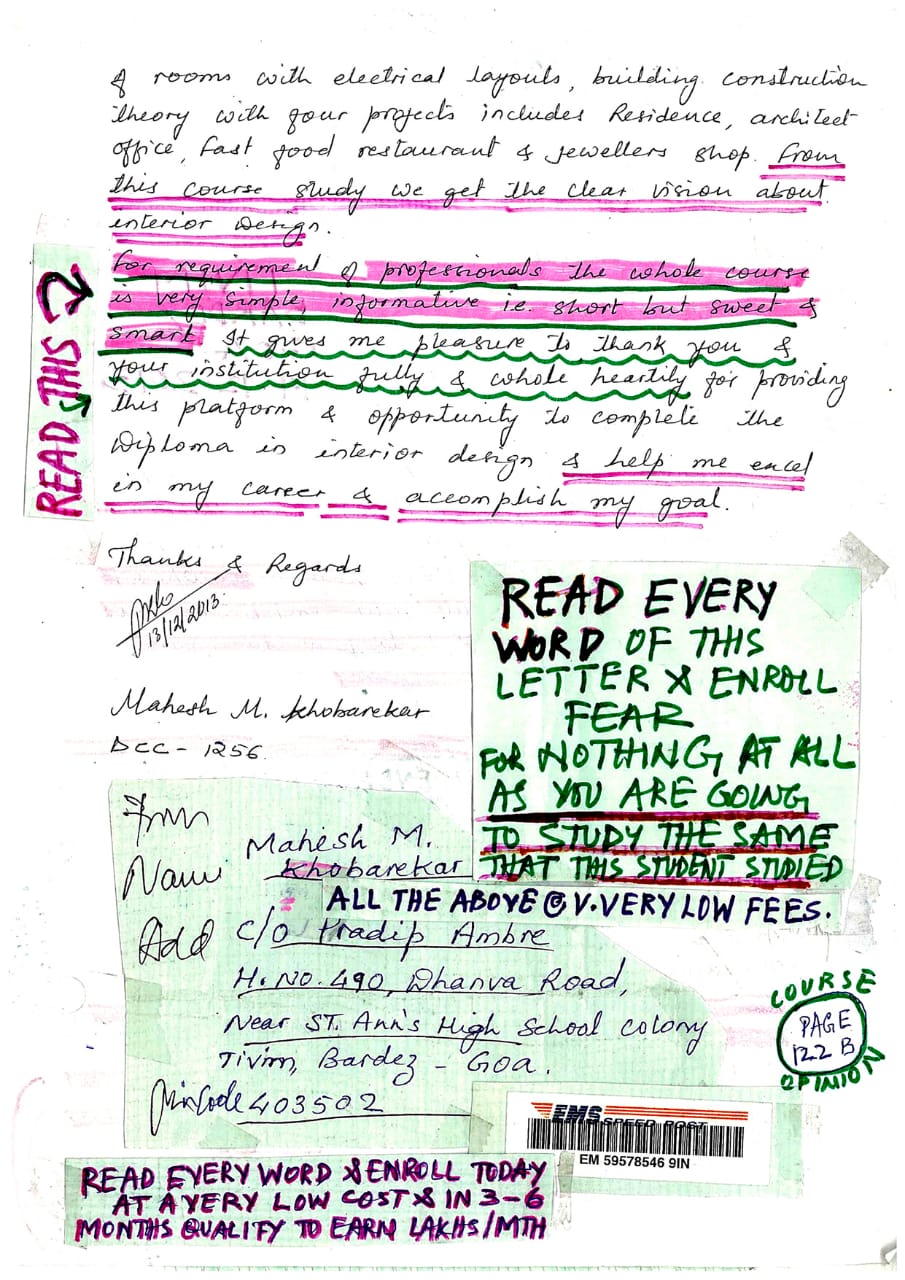 of rooms with electrical layouts, building construction
theory with four projects includes Residence, architect
office, Fast food restaurant & Jewellers shop. From
this course study we get the clear vision about
interior Design.
For requirement of professionals the whole course
is very simple, informative i.e. short but sweet &
smart. It gives me pleasure to thank you &
your institution fully & whole heartily for providing
this platform & opportunity to complete the
Diploma in interior design & help me excel
in my career & accomplish my goal.
READ THIS
Thanks & Regards
13/12/2013.
Mahesh M. Khobarekar
DCC - 1256.
READ EVERY
WORD OF THIS
LETTER & ENROLL
FEAR
FOR NOTHING, AT ALL
AS YOU ARE GOING
TO STUDY THE SAME
THAT THIS STUDENT STUDIED
ALL THE ABOVE @ V.VERY LOW FEES.
From
Name Mahesh M.
Khobarekar
Add C/O Pradip Ambre
H. NO. 490, Dhanva Road,
Near ST. Ann's High School Colony
Tivim, Bardez - Goa.
PinCode 403502
COURSE
PAGE
122 B
OPINION
EMS SPEED POST
EM 59578546 9IN
READ EVERY WORD & ENROLL TODAY
AT A VERY LOW COST & IN 3-6
MONTHS QUALITY TO EARN LAKHS/MTH